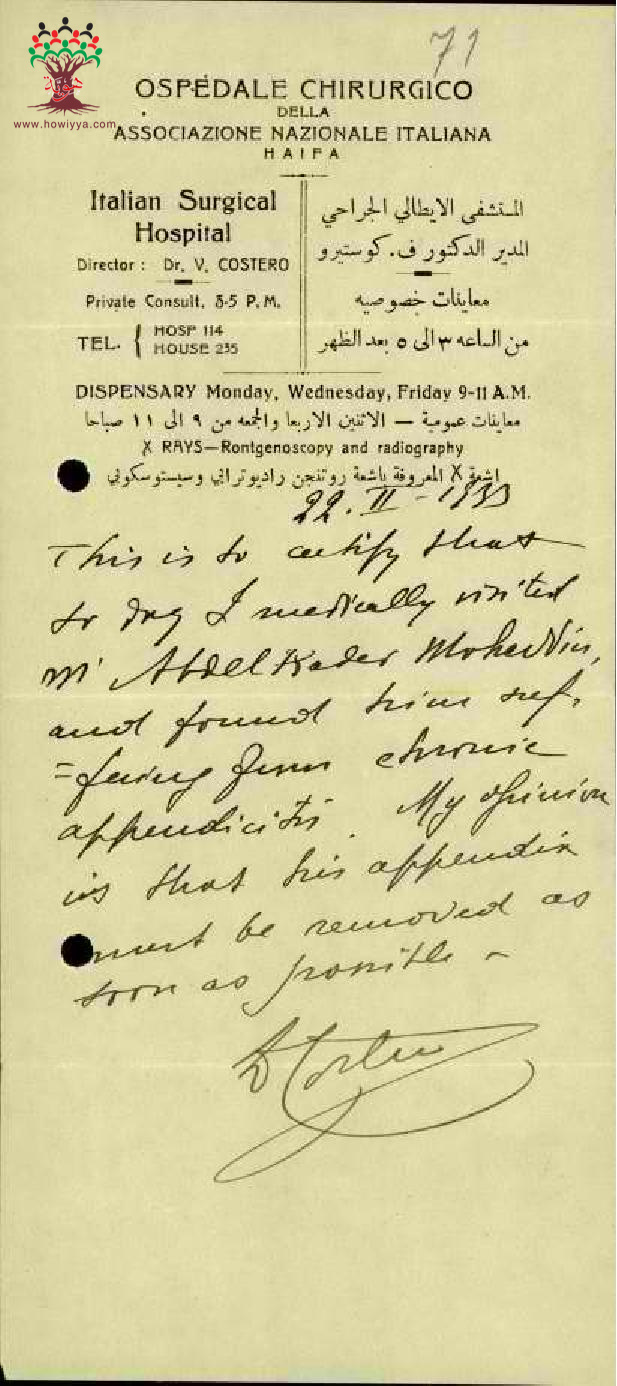 71
www.howiyya.com
OSPEDALE CHIRURGICO
DELLA
ASSOCIAZIONE NAZIONALE ITALIANA
HAIFA
Italian Surgical
Hospital
Director : Dr. V. COSTERO
Private Consult. 3-5 P. M.
TEL. { HOSP 114
HOUSE 235
المستشفى الايطالي الجراحي
المدير الدكتور ف. كوستيرو
معاينات خصوصيه
من الساعه ٣ الى ٥ بعد الظهر
DISPENSARY Monday, Wednesday, Friday 9-11 A.M.
معاينات عمومية — الاثنين الاربعا والجمعه من ٩ الى ١١ صباحا
X RAYS—Rontgenoscopy and radiography
اشعة X المعروفة باشعة روتنجن راديوترابي وسيستوسكوبي
22. II - 1933
This is to certify that
to day I medically visited
Mr Abdel Kader Moheddin,
and found him suf.
=fering from chronic
appendicitis. My opinion
is that his appendix
must be removed as
soon as possible -
D Costero